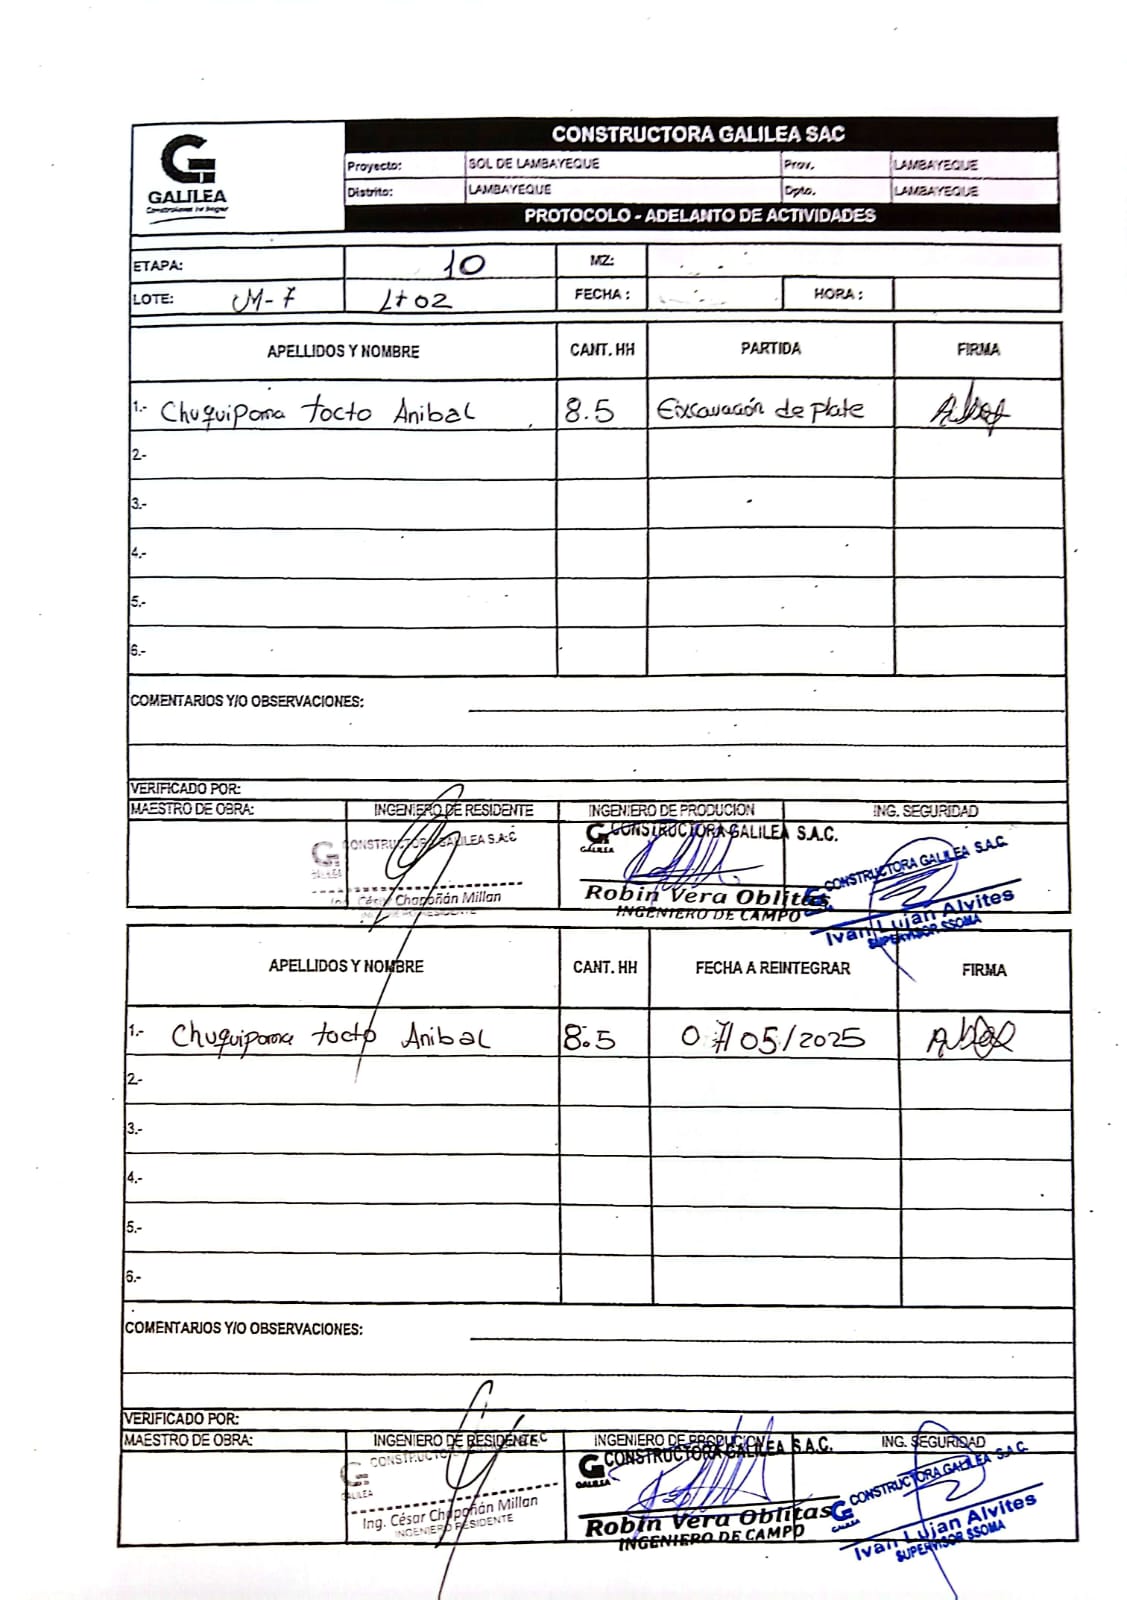 CONSTRUCTORA GALILEA SAC
GALILEA
Proyecto: SOL DE LAMBAYEQUE Prov. LAMBAYEQUE
Distrito: LAMBAYEQUE Dpto. LAMBAYEQUE
PROTOCOLO - ADELANTO DE ACTIVIDADES
ETAPA: 10 MZ:
LOTE: M-7 Lt 02 FECHA : HORA :
APELLIDOS Y NOMBRE CANT. HH PARTIDA FIRMA
1.- Chuquipoma tocto Anibal 8.5 Excavación de plate
2.-
3.-
4.-
5.-
6.-
COMENTARIOS Y/O OBSERVACIONES:
VERIFICADO POR:
MAESTRO DE OBRA: INGENIERO DE RESIDENTE INGENIERO DE PRODUCION ING. SEGURIDAD
CONSTRUCTORA GALILEA S.A.C
GALILEA
Ing. César Chapoñán Millan
INGENIERO RESIDENTE
CONSTRUCTORA GALILEA S.A.C.
GALILEA
Robin Vera Oblitas
INGENIERO DE CAMPO
CONSTRUCTORA GALILEA S.A.C.
Ivan Lujan Alvites
SUPERVISOR SSOMA
APELLIDOS Y NOMBRE CANT. HH FECHA A REINTEGRAR FIRMA
1.- Chuquipoma tocto Anibal 8.5 07/05/2025
2.-
3.-
4.-
5.-
6.-
COMENTARIOS Y/O OBSERVACIONES:
VERIFICADO POR:
MAESTRO DE OBRA: INGENIERO DE RESIDENTE INGENIERO DE PRODUCION ING. SEGURIDAD
GALILEA
Ing. César Chapoñán Millan
INGENIERO RESIDENTE
CONSTRUCTORA GALILEA S.A.C.
GALILEA
Robin Vera Oblitas
INGENIERO DE CAMPO
CONSTRUCTORA GALILEA S.A.C.
GALILEA
Ivan Lujan Alvites
SUPERVISOR SSOMA